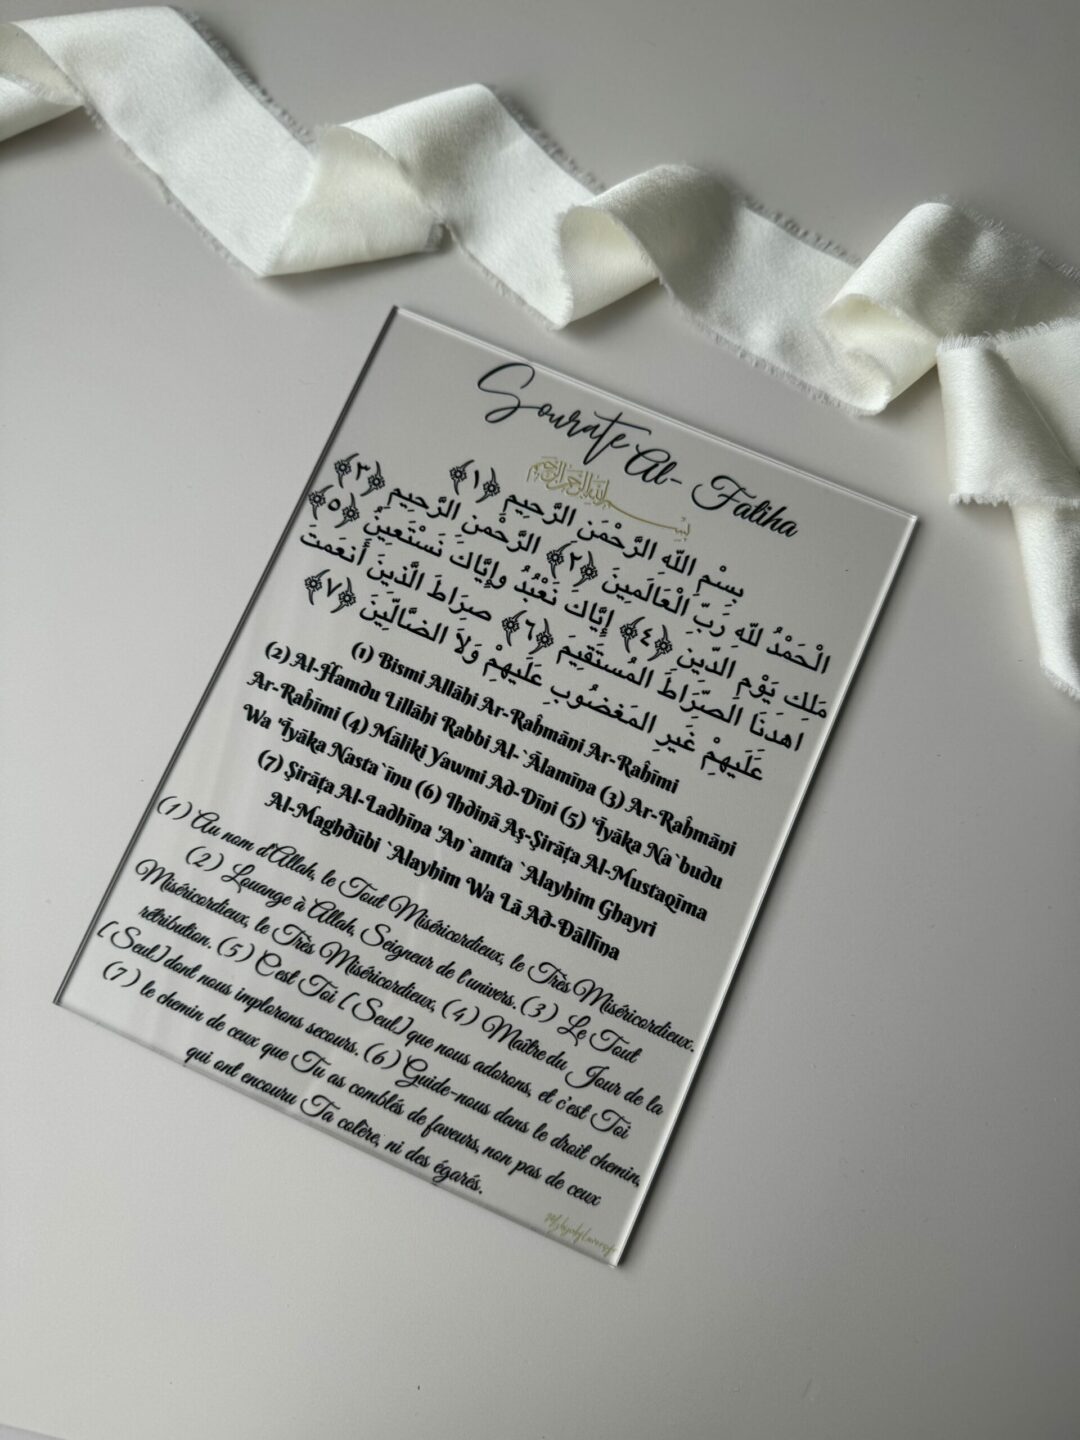 Sourate Al- Fatiha
بِسْمِ اللَّهِ الرَّحْمَنِ الرَّحِيمِ
بِسْمِ اللّهِ الرَّحْمَنِ الرَّحِيمِ ﴿١﴾
الْحَمْدُ للّهِ رَبِّ الْعَالَمِينَ ﴿٢﴾ الرَّحْمنِ الرَّحِيمِ ﴿٣﴾
مَلِكِ يَوْمِ الدِّينِ ﴿٤﴾ إِيَّاكَ نَعْبُدُ وإِيَّاكَ نَسْتَعِينُ ﴿٥﴾
اهدَنَا الصِّرَاطَ المُستَقِيمَ ﴿٦﴾ صِرَاطَ الَّذِينَ أَنعَمتَ
عَلَيهِمْ غَيرِ المَغضُوبِ عَلَيهِمْ وَلاَ الضَّالِّينَ ﴿٧﴾
(1) Bismi Allāhi Ar-Raĥmāni Ar-Raĥīmi
(2) Al-Ĥamdu Lillāhi Rabbi Al-`Ālamīna (3) Ar-Raĥmāni
Ar-Raĥīmi (4) Māliki Yawmi Ad-Dīni (5) 'Īyāka Na`budu
Wa 'Īyāka Nasta`īnu (6) Ihdinā Aş-Şirāţa Al-Mustaqīma
(7) Şirāţa Al-Ladhīna 'An`amta `Alayhim Ghayri
Al-Maghđūbi `Alayhim Wa Lā Ađ-Đāllīna
(1) Au nom d'Allah, le Tout Miséricordieux, le Très Miséricordieux.
(2) Louange à Allah, Seigneur de l'univers. (3) Le Tout
Miséricordieux, le Très Miséricordieux, (4) Maître du Jour de la
rétribution. (5) C'est Toi [Seul] que nous adorons, et c'est Toi
[Seul] dont nous implorons secours. (6) Guide-nous dans le droit chemin,
(7) le chemin de ceux que Tu as comblés de faveurs, non pas de ceux
qui ont encouru Ta colère, ni des égarés.